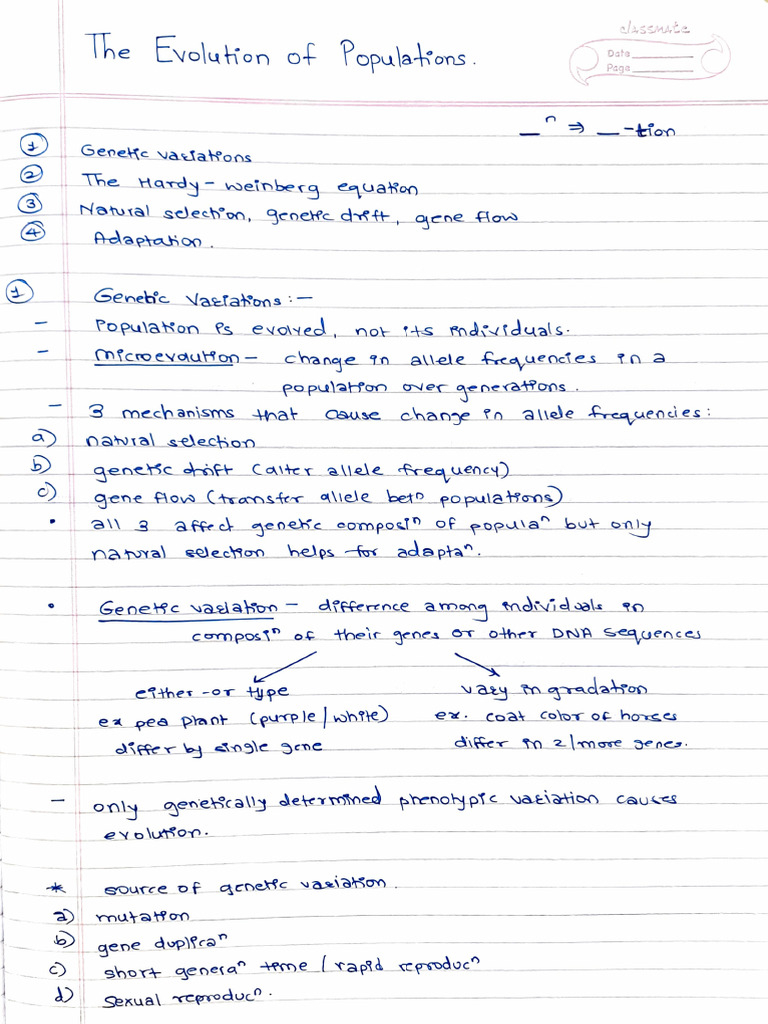 classmate
Date
Page
The Evolution of Populations.
__ⁿ ⇒ __-tion
① Genetic variations
② The Hardy-Weinberg equation
③ Natural selection, genetic drift, gene flow
④ Adaptation.
① Genetic Variations:-
- Population is evolved, not its individuals.
- Microevaution - change in allele frequencies in a
population over generations.
- 3 mechanisms that cause change in allele frequencies:
a) natural selection
b) genetic drift (alter allele frequency)
c) gene flow (transfer allele betⁿ populations)
• all 3 affect genetic composiⁿ of populaⁿ but only
natural selection helps for adaptaⁿ.
• Genetic variation - difference among individuals in
composiⁿ of their genes or other DNA sequences
either-or type vary in gradation
ex pea plant (purple/white) ex. coat color of horses
differ by single gene differ in 2/more genes.
- only genetically determined phenotypic variation causes
evolution.
* source of genetic variation.
a) mutation
b) gene duplicaⁿ
c) short generaⁿ time / rapid reproducⁿ
d) sexual reproducⁿ.